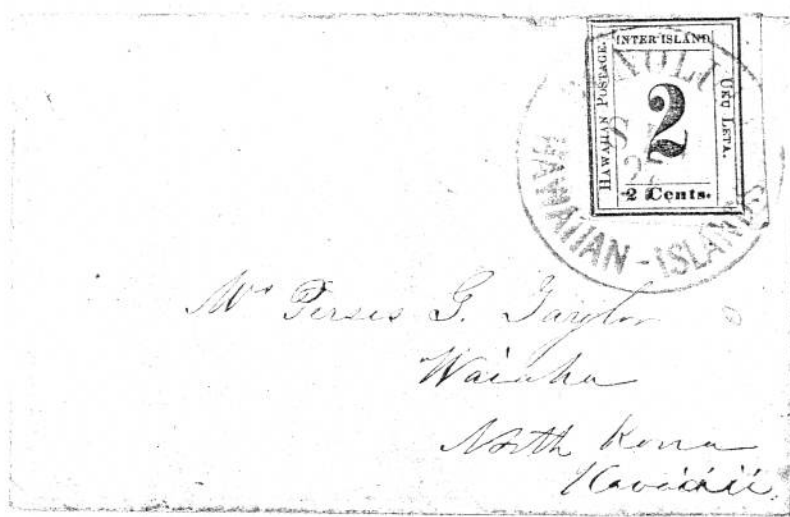 INTER ISLAND
HAWAIIAN POSTAGE.
2
UKU LETA.
2 Cents.
HAWAIIAN-ISLANDS
Mrs Persis G. Taylor
Waiaha
North Kona
Hawaii